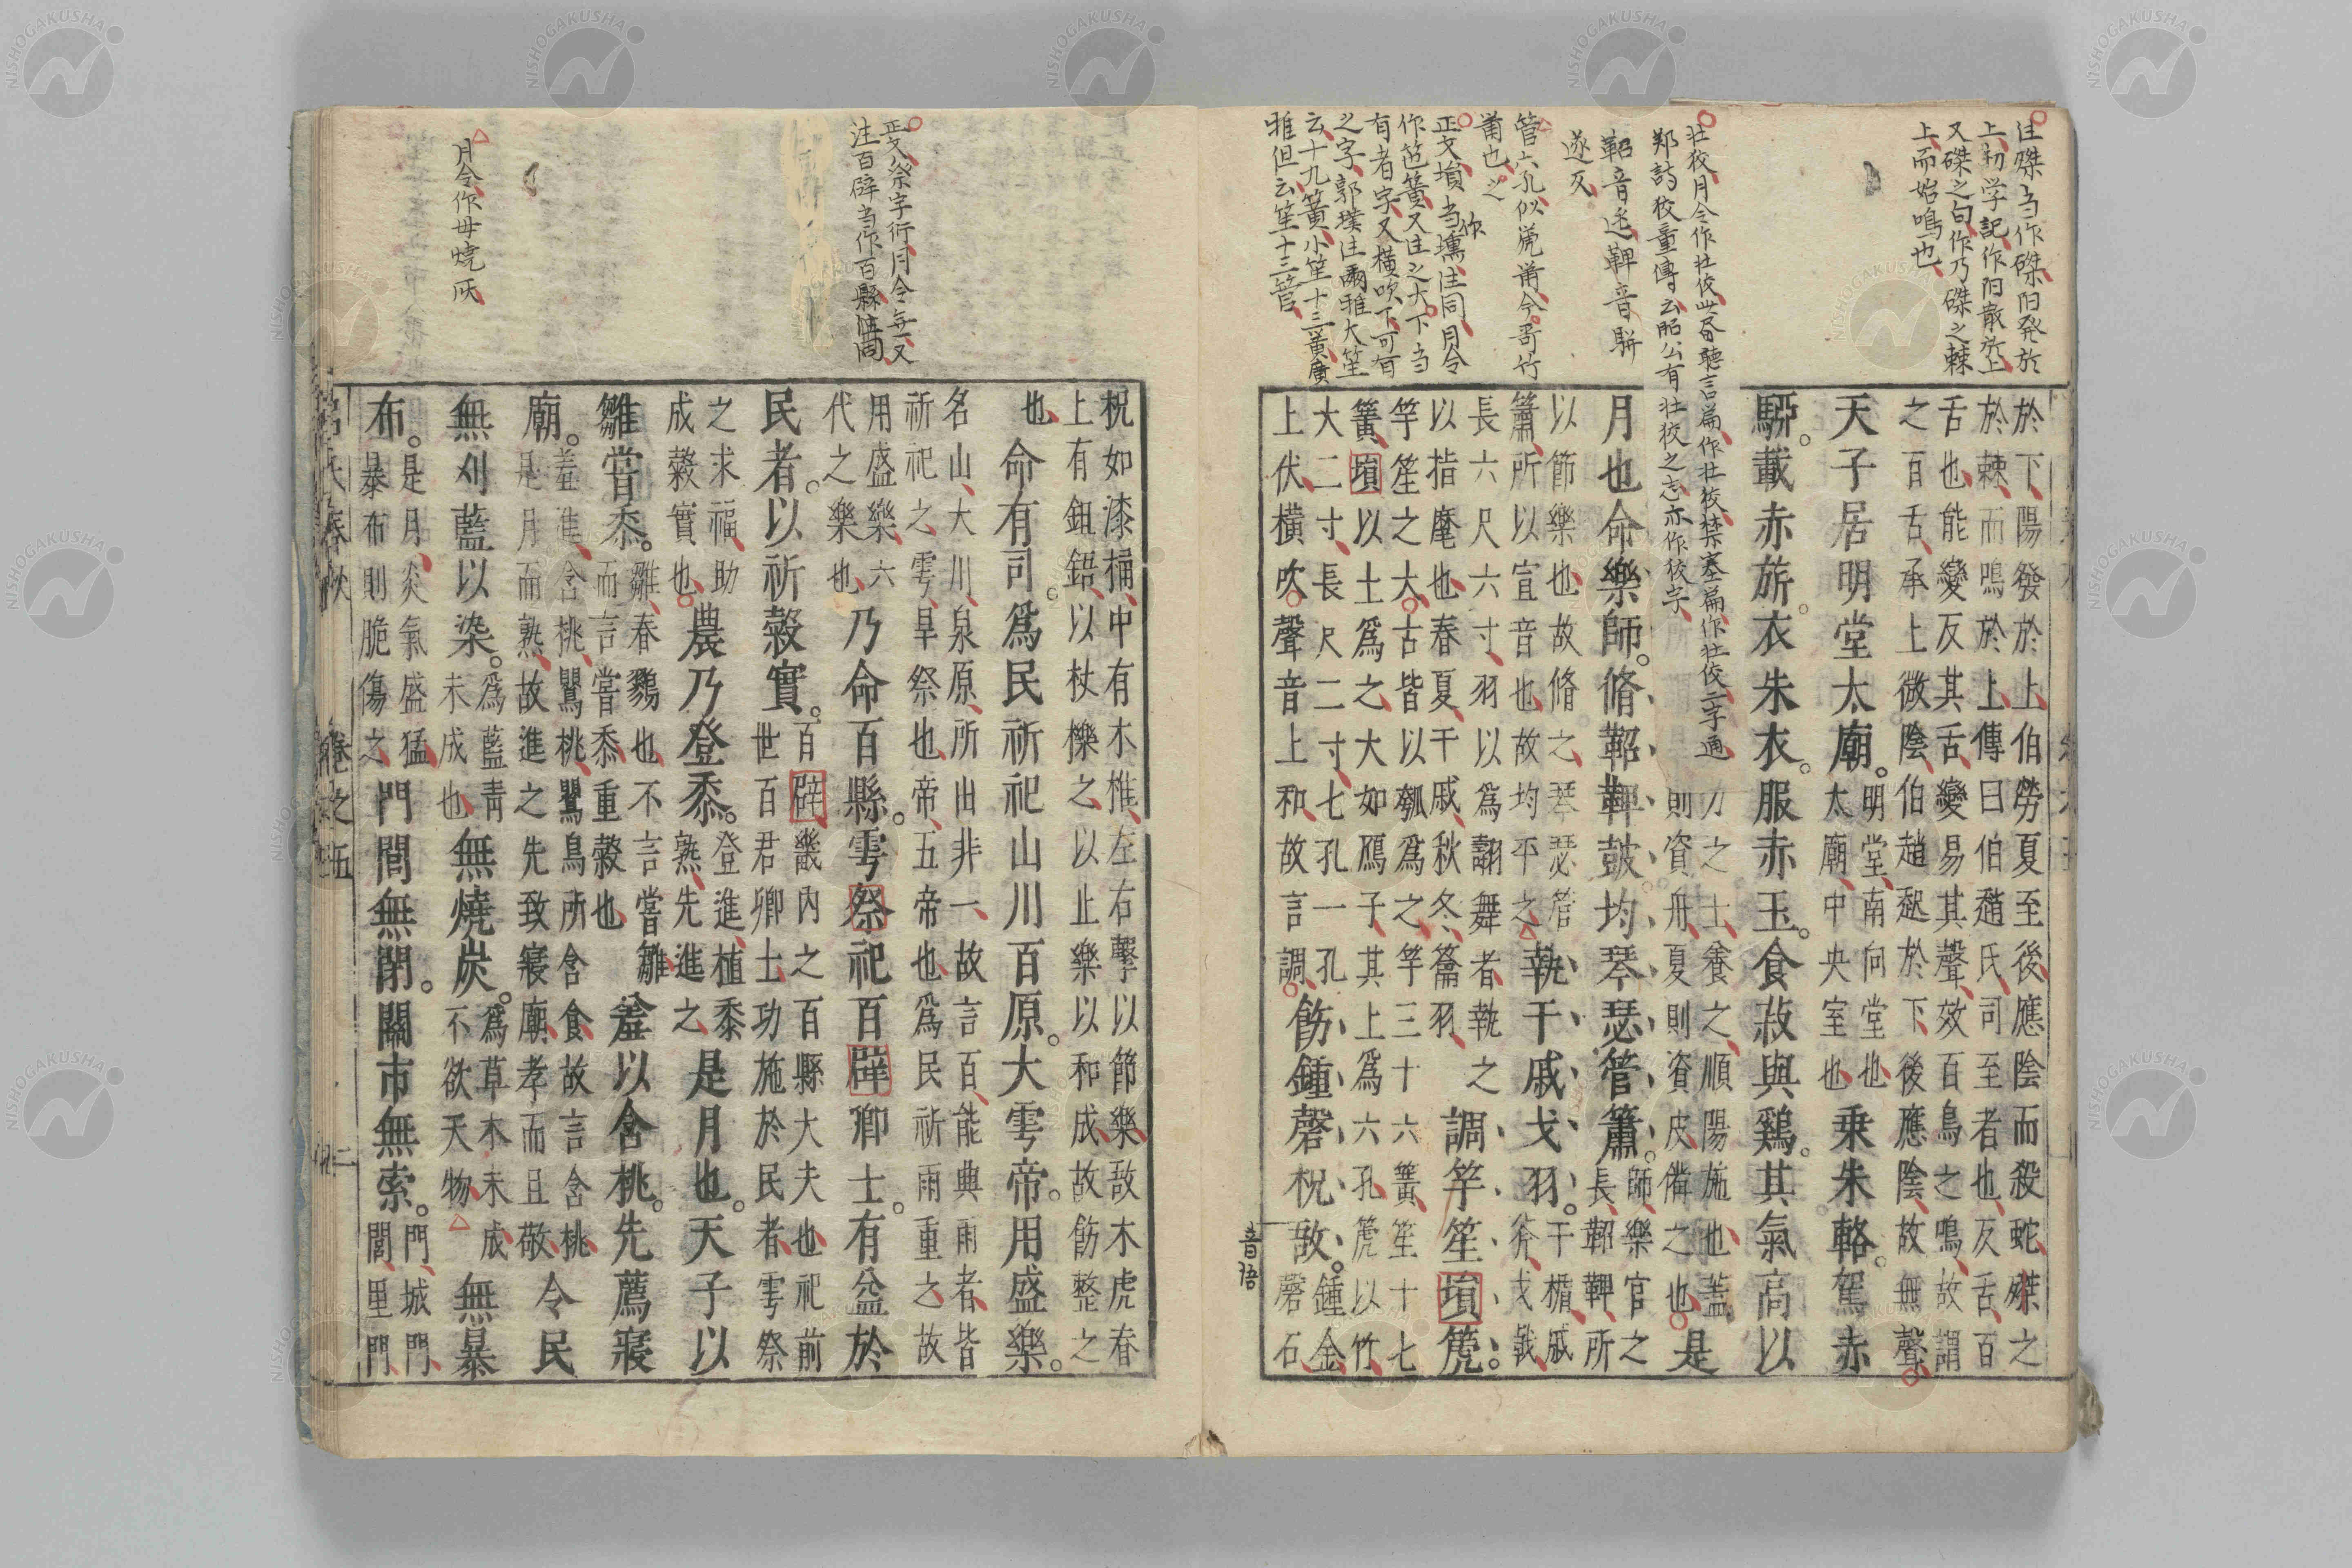 注磔当作磔陽発於
上初学記作陽散於上
又磔之句作乃磔之棘
上而始鳴也
壮狡月令作壮佼此春聽言篇作壮狡禁塞篇作壮佼二字通
郑詩狡童傳云昭公有壮狡之志亦作狡字
鞀音迯鞞音駢
遂反
管六孔似箎
正文塤当作壎注同月令
作笆簧又注之大下当
有者字又橫吹下可有
之字郭璞注爾雅大笙
云十九簧小笙十三簧廣
雅但云笙十三管
於下陽發於上伯勞夏至後應陰而殺蛇磔之
於棘而鳴於上傳曰伯趙氏司至者也反舌百
舌也能變反其舌變易其聲效百鳥之鳴故謂
之百舌承上微陰伯趙起於下後應陰故無聲
天子居明堂太廟。
明堂南向堂也
太廟中央室也
乘朱輅。駕赤
騂。載赤旂。衣朱衣。服赤玉。食菽與鷄。其氣高以
力之士養之順陽施也蓋
則資舟夏則資皮備之也
是
月也命樂師。脩鞀鞞鼓均琴瑟管簫。
師樂官之
長鞀鞞所
以節樂也故脩之琴瑟管
簫所以宣音也故均平之
執干戚戈羽。
干楯戚
斧戈戟
長六尺六寸羽以爲翿舞者執之
以指麾也春夏干戚秋冬籥羽
調竽笙塤箎。
竽笙之大古皆以瓠爲之竽三十六簧笙十七
簧塤以土爲之大如鴈子其上爲六孔箎以竹
大二寸長尺二寸七孔一孔
上伏橫吹聲音上和故言調
飭鍾磬柷敔。
鍾金
磬石
音語
正文祭字衍月令無又
注百辟当作百縣
月令作毋燒灰
柷如漆桶中有木椎左右擊以節樂敔木虎舂
上有鉏鋙以杖櫟之以止樂以和成故飭整之
也
命有司。爲民祈祀山川百原。大雩帝。用盛樂。
名山大川泉原所出非一故言百能興雨者皆
祈祀之雩旱祭也帝五帝也爲民祈雨重之故
用盛樂六
代之樂也
乃命百縣。雩祭祀百辟卿士。有益於
民者。以祈穀實。
百辟畿內之百縣大夫也祀前
世百君卿士功施於民者雩祭
之求福助
成穀實也
農乃登黍。
登進植黍
熟先進之
是月也。天子以
雛嘗黍。
雛春鷚也不言嘗雛
而言嘗黍重穀也
羞以含桃。先薦寢
廟。
羞進含桃鸎桃鸎鳥所含食故言含桃
是月而熟故進之先致寢廟孝而且敬
令民
無刈藍以染。
爲藍青
未成也
無燒炭。
爲草木未成
不欲夭物
無暴
布。
是月炎氣盛猛
暴布則脆傷之
門閭無閉。關市無索。
門城門
閭里門
呂氏春秋
卷之五
二